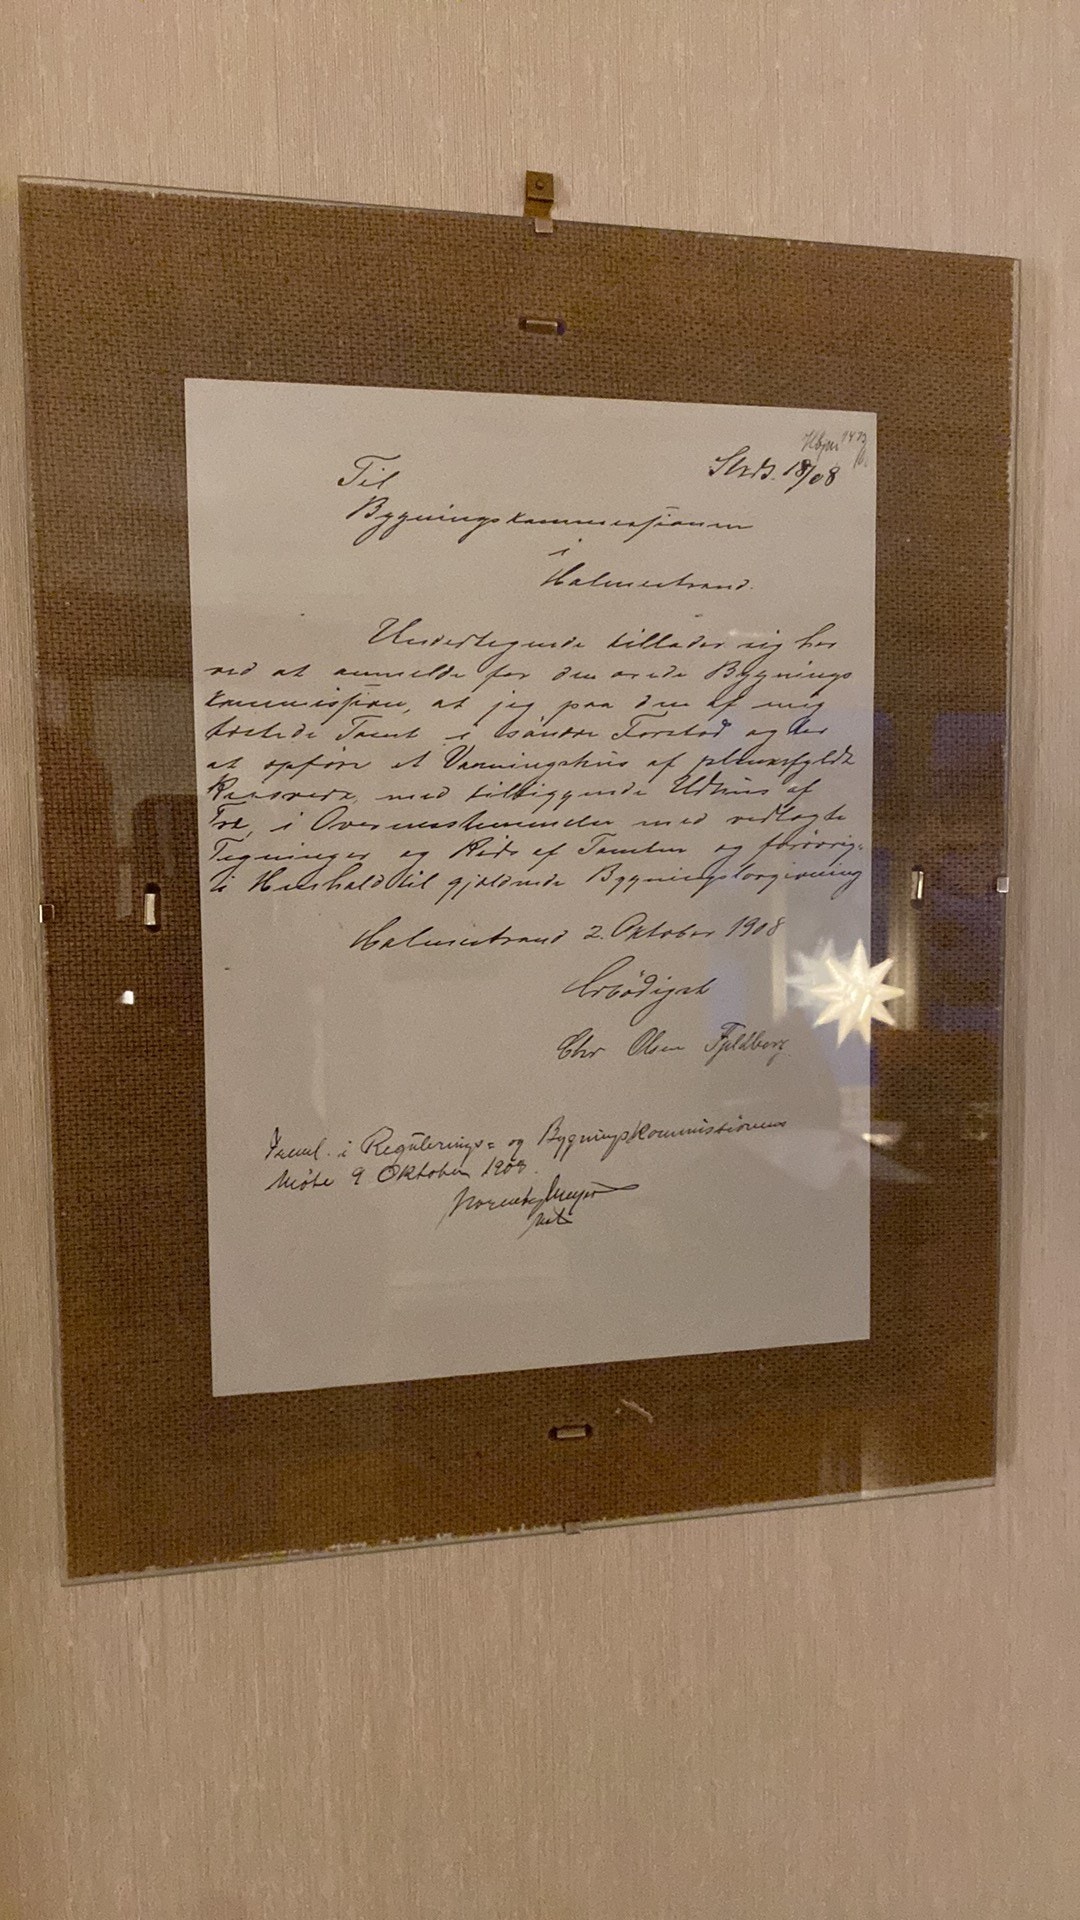 18/08
Til
Bygningskommissionen
i
Holmestrand.
Undertegnede tillader sig her
ved at anmelde for den ærede Bygnings
kommission, at jeg paa den af mig
Tomt i søndre Forstad agter
at opføre et Vaaningshus af plankefyldt
med tilliggende Udhus af
Træ, i Overensstemmelse med vedlagte
Tegninger og Rids af Tomten og forøvrig-
i Henhold til gjældende Bygningslovgivning
Holmestrand 2. Oktober 1908
Ærbødigst
Chr Olsen Fjeldberg.
i Regulerings= og Bygningskommissionens
Møte 9 Oktober 1908.